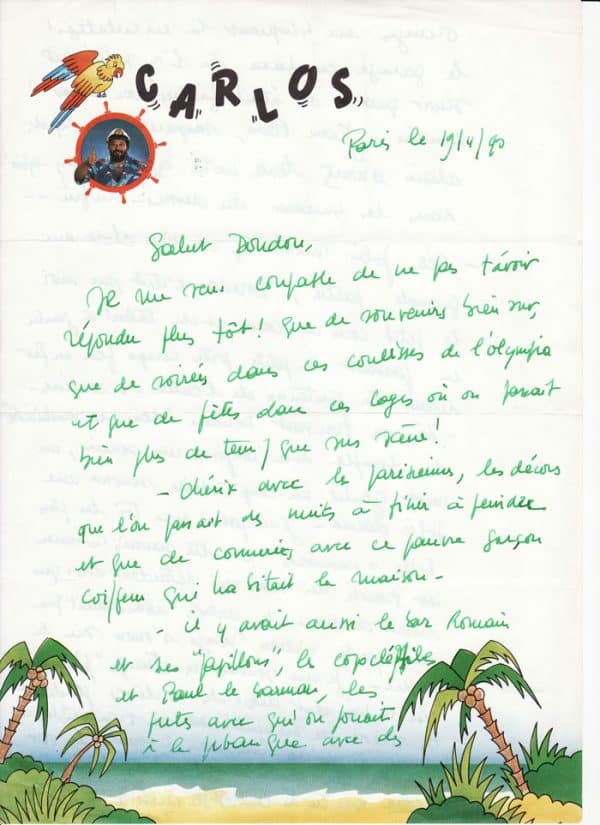 CARLOS
Paris le 19/4/90
Salut Doudou,
Je me sens coupable de ne pas t'avoir
répondu plus tôt! que de souvenirs bien sur,
que de soirées dans ces coulisses de l'olympia
et que de fêtes dans ces loges où on passait
bien plus de temps que sur scène!
- chérix avec le parisiennes, les décors
que l'on passait des nuits à finir à peindre
et que de conneries avec ce pauvre garçon
coiffeur qui habitait la maison -
- il y avait aussi le bar Romain
et ses "papillons", le
et Paul le barman, les
putes avec qui on jouait
à la planque avec des